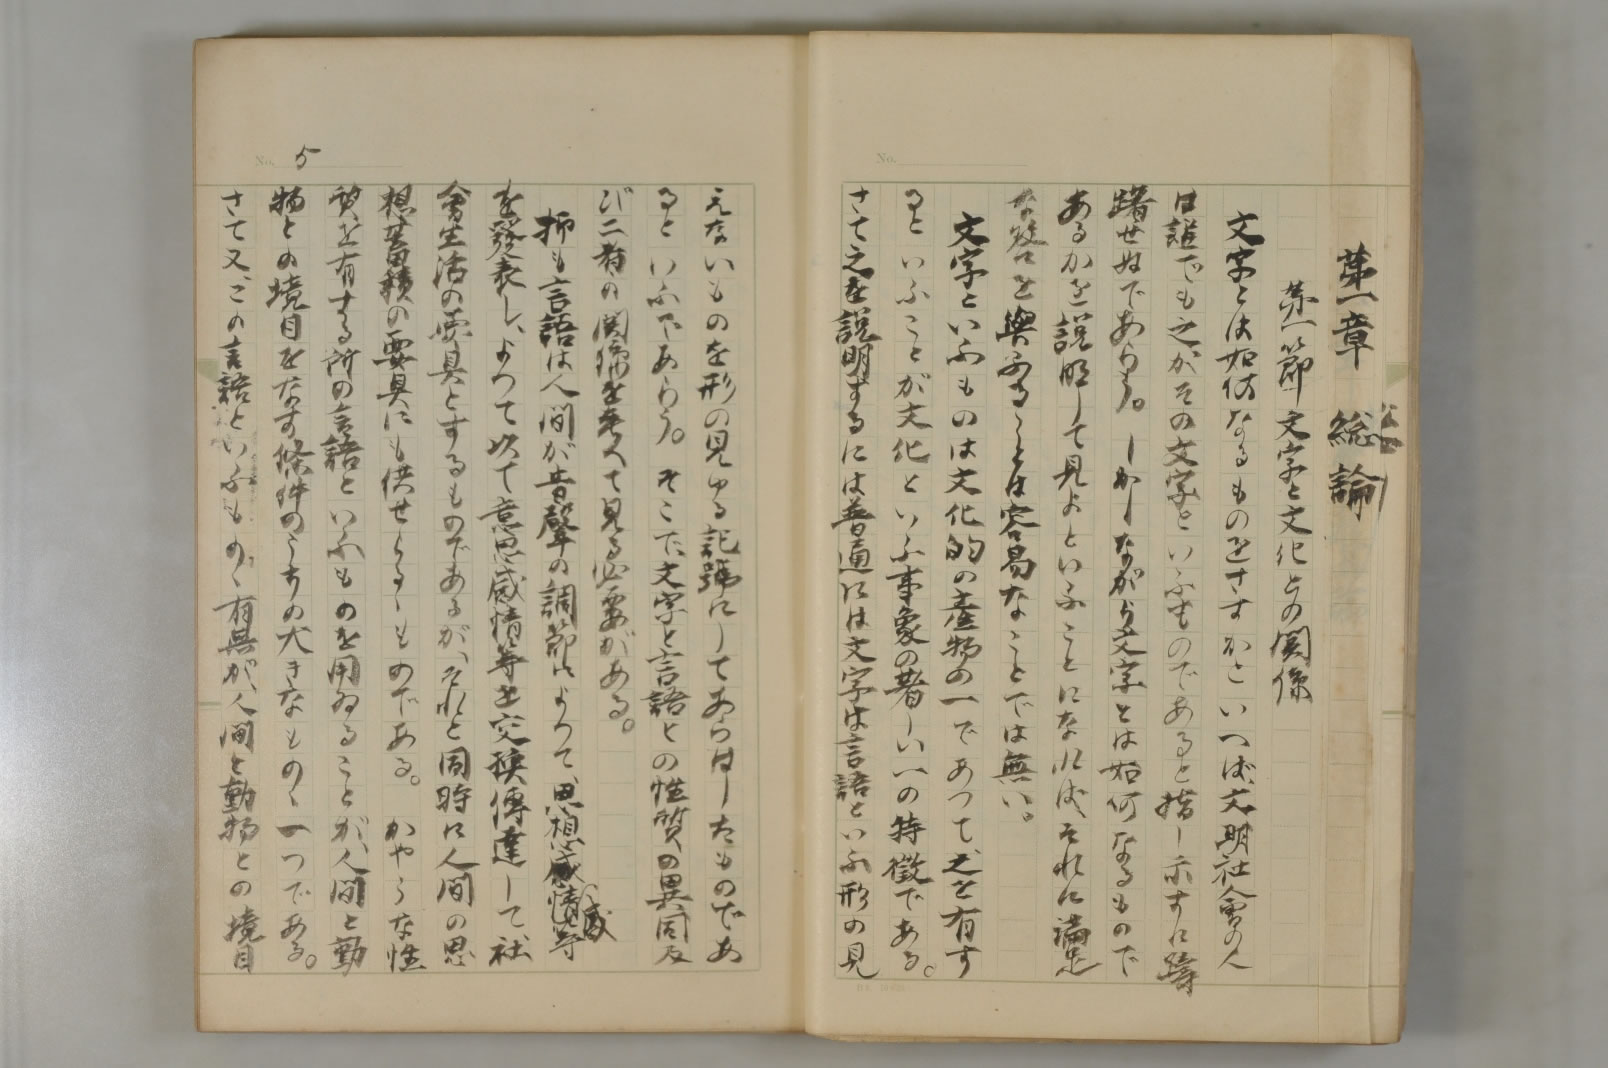 第一章　総論
第一節　文字と文化との関係
文字とは如何なるものをさすかといへば、文明社會の人
は誰でも之がその文字といふものであると指し示すに躊
躇せぬであらう。しかしながら文字とは如何なるもので
あるかを説明して見よといふことになれば、それに満足
な答を與ふることは容易なことでは無い。
文字といふものは文化的の産物の一であつて、之を有す
るといふことが文化といふ事象の著しい一の特徴である。
さて之を説明するには普通には文字は言語といふ形の見
No. 5
えないものを形の見ゆる記號にしてあらはしたものであ
るといふであらう。そこで、文字と言語との性質の異同及
び二者の関係を考へて見る必要がある。
抑も言語は人間が音聲の調節によつて、思想感情等
を發表し、よつて以て意思感情等を交換傳達して、社
會生活の要具とするものであるが、それと同時に人間の思
想蓄積の要具にも供せらるゝものである。かやうな性
質を有する所の言語といふものを用ゐることが、人間と動
物との境目をなす條件のうちの大きなものゝ一つである。
さて又、この言語といふものゝ有無が、人間と動物との境目